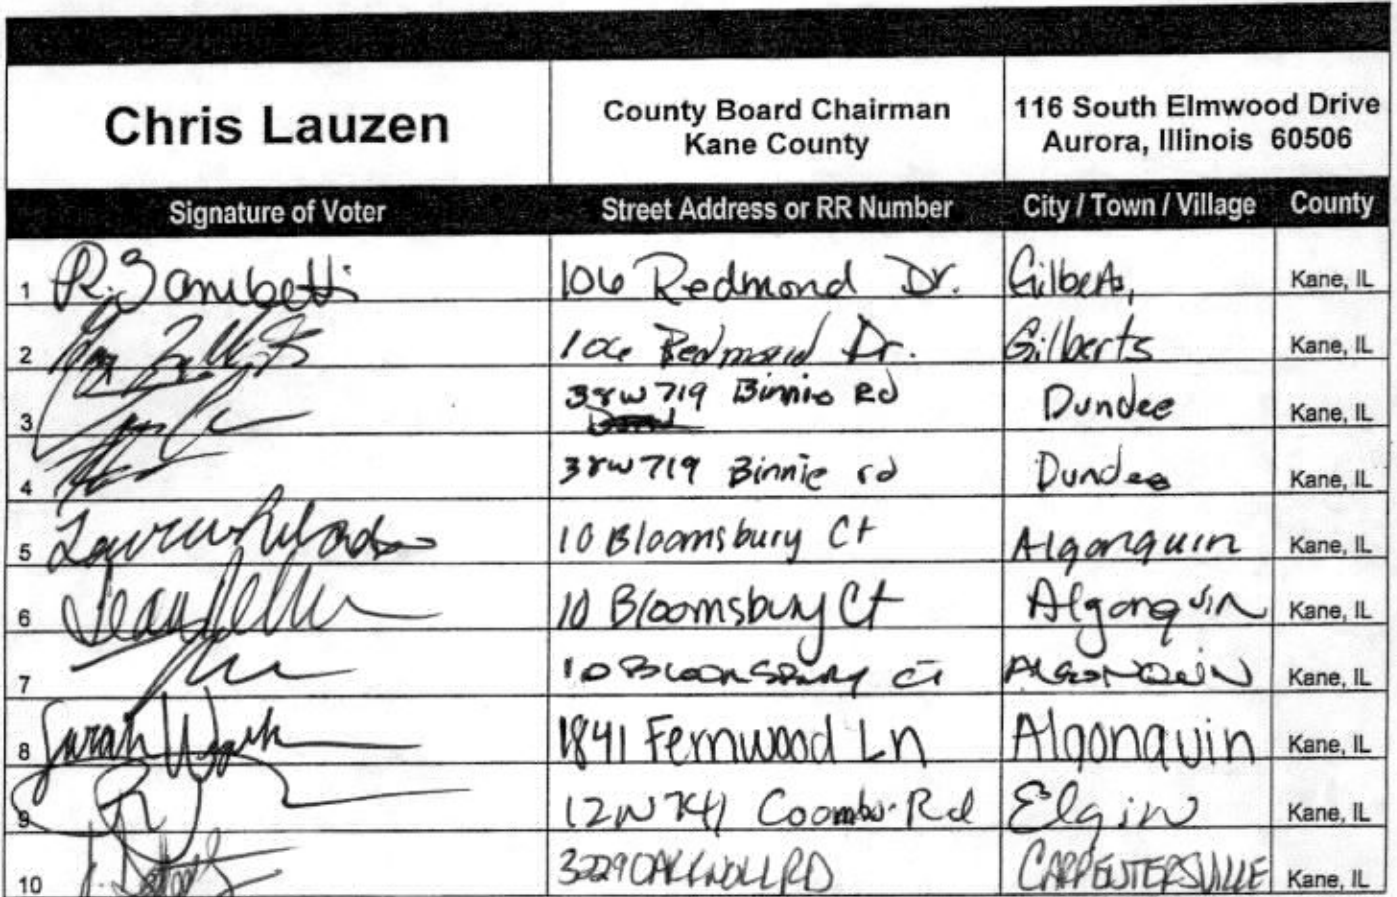 Chris Lauzen
County Board Chairman
Kane County
116 South Elmwood Drive
Aurora, Illinois 60506
Signature of Voter Street Address or RR Number City / Town / Village County
1 R. Zambetti 106 Redmond Dr. Gilberts, Kane, IL
2 106 Redmond Dr. Gilberts Kane, IL
3 38W719 Binnie Rd Dundee Kane, IL
4 38W719 Binnie rd Dundee Kane, IL
5 10 Bloomsbury Ct Algonquin Kane, IL
6 10 Bloomsbury Ct Algonquin Kane, IL
7 10 Bloomsbury Ct Algonquin Kane, IL
8 Sarah 1841 Fernwood Ln Algonquin Kane, IL
9 12N741 Coombs Rd Elgin Kane, IL
10 3229 OAK KNOLL RD CARPENTERSVILLE Kane, IL